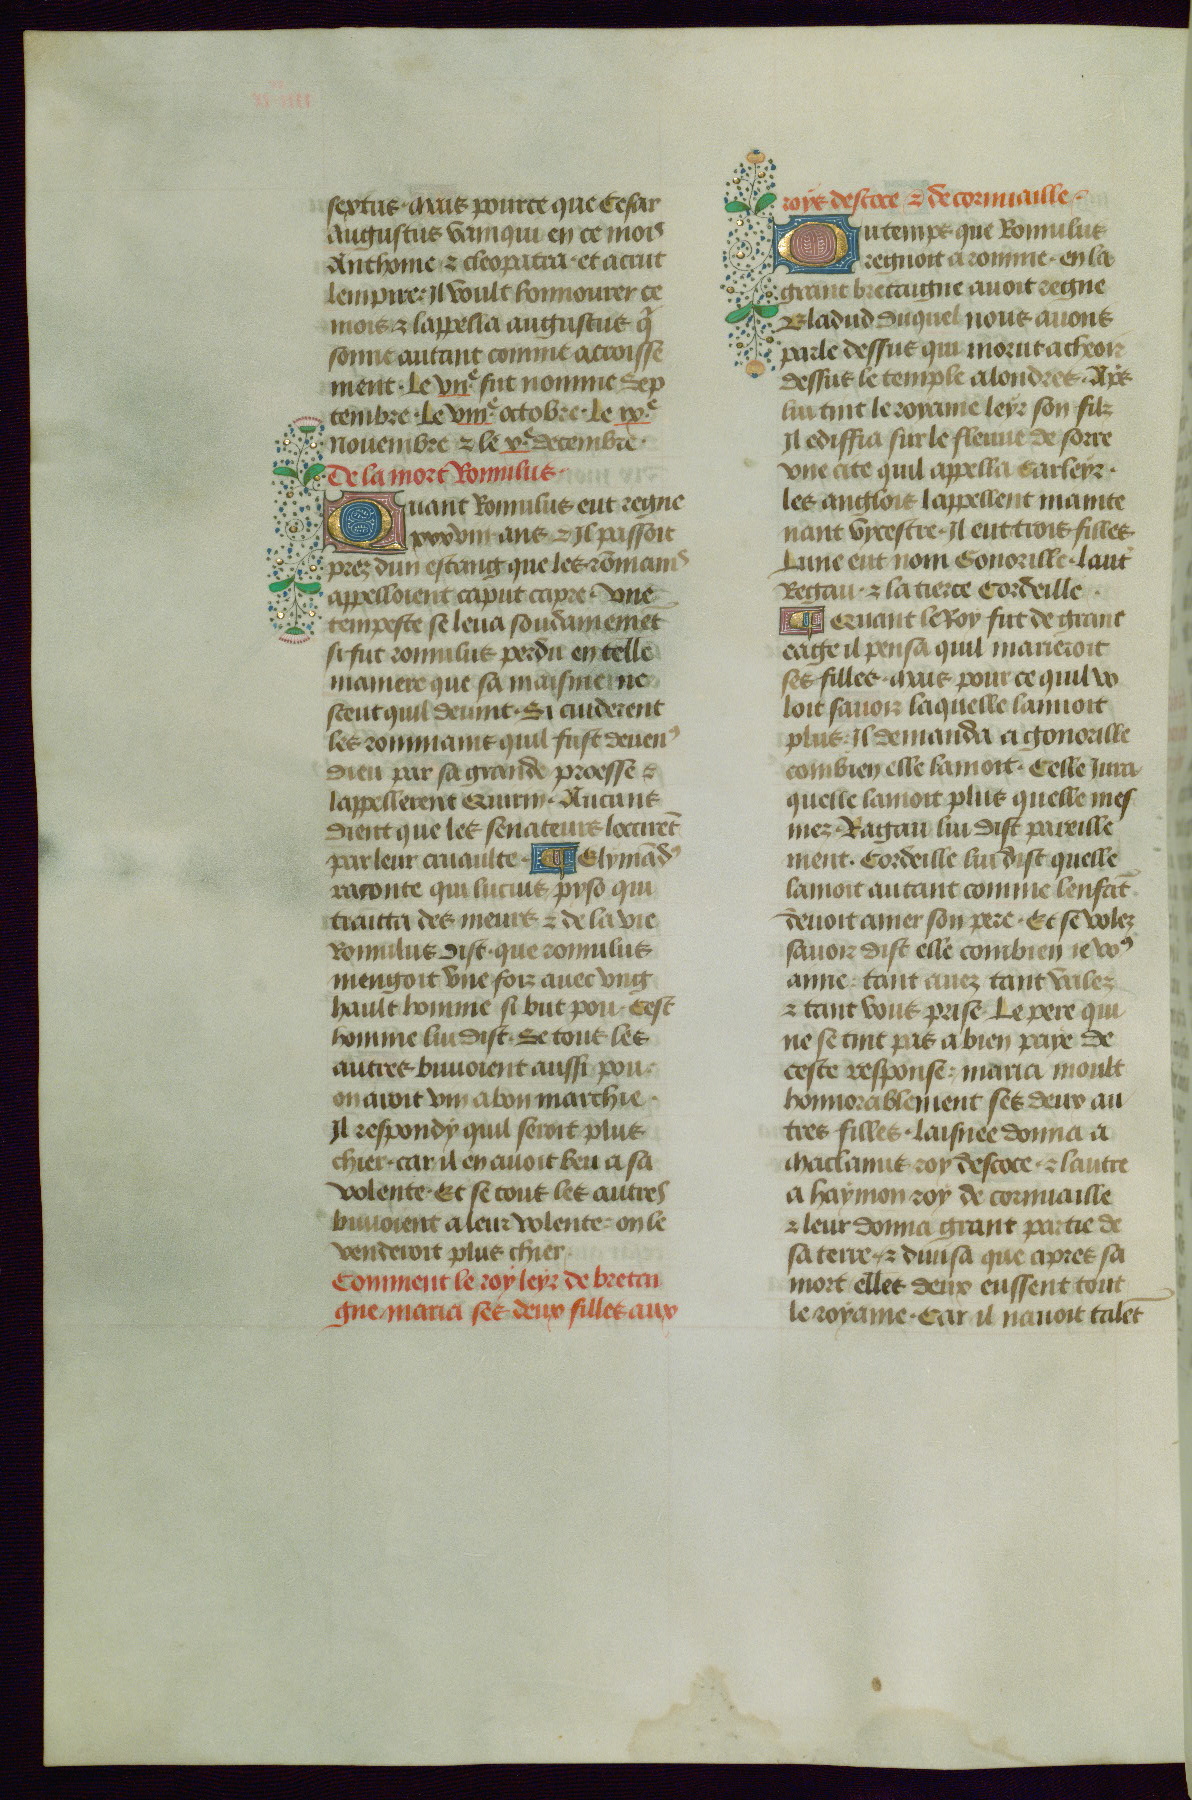 sextus. Mais pource que Cesar
Augustus vainqui en ce mois
Anthoine ⁊ cleopatra. et accrut
lempire: Il voult honnourer ce
mois ⁊ lappella augustus q̃
sonne autant comme accroisse
ment. Le viiᵉ fut nomme Sep
tembre. Le viiiᵉ octobre. Le ixᵉ
novembre ⁊ le xᵉ decembre.
De la mort Romulus.
Quant Romulus eut regne
xxxviii ans ⁊ Il passoit
prez dun estang que les rõmains
appelloient caput capre. Une
tempeste se leva soudainemẽt
si fut romulus perdu en telle
maniere que sa maisnie ne
sceut quil devint. Si cuiderent
les rommains quil fust devenꝰ
dieu par sa grande proesse ⁊
lappellerent Quirin. Aucuns
dient que les senateurs loccirẽt
par leur cruaulte. Elymãdꝰ
raconte qui lucius pyso qui
traitta des meurs ⁊ de la vie
Romulus dist. que romulus
mengoit une foiz avec ung
hault homme si but pou. Cest
homme lui dist. Se tous les
autres buvoient aussi pou.
on avoit vin a bon marchie.
Il respondy quil seroit plus
chier. car il en avoit beu a sa
volente. Et se tous les autres
buvoient a leur volente: on le
venderoit plus chier.
Comment le roy leyr de breta
gne maria ses deux filles aux
roys descoce ⁊ de cornuaille.
Du temps que Romulus
regnoit a romme. en la
grant bretaigne avoit regne
Bladud duquel nous avons
parle dessus qui morut a cheoir
dessus le temple a londres. Apš
lui tint le royame leyr son filz
Il ediffia sur le fleuve de sorre
une cite quil appella Carleyr.
les anglois lappellent mainte
nant vyrcestre. Il eut trois filles
Lune eut nom Gonorille. Laut̃
Regau. ⁊ la tierce Cordeille.
Quant le Roy fut de grant
eage il pensa quil marieroit
ses filles. Mais pour ce quil vo
loit savoir laquelle lamoit
plus. Il demanda a gonorille
combien elle lamoit. Celle Jura
quelle lamoit plus quelle mes
mez. Ragau lui dist pareille
ment. Cordeille lui dist quelle
lamoit autant comme lenfãt
devoit amer son pere. Et se volez
savoir dist elle combien ie voꝰ
anne: tant avez tant valez
⁊ tant vous prise. Le pere qui
ne se tint pas a bien paye de
ceste response: maria moult
honnorablement ses deux au
tres filles. laisnee donna a
Maclanus roy descoce. ⁊ lautre
a haymon roy de cornuaille
⁊ leur donna grant partie de
sa terre. ⁊ divisa que apres sa
mort elles deux eussent tout
le royame. Car il navoit talẽt